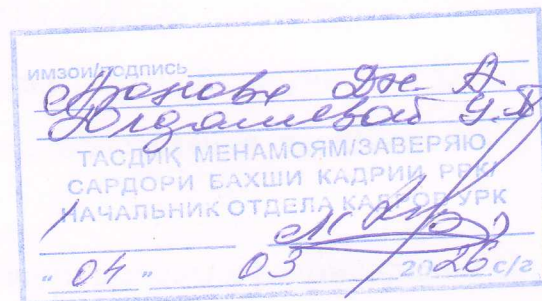 ИМЗОИ/ПОДПИСЬ
Юлдашевой
ТАСДИҚ МЕНАМОЯМ/ЗАВЕРЯЮ
САРДОРИ БАХШИ КАДРИИ РРК/
НАЧАЛЬНИК ОТДЕЛА КАДРОВ УРК
"04" 03 2026 с/г